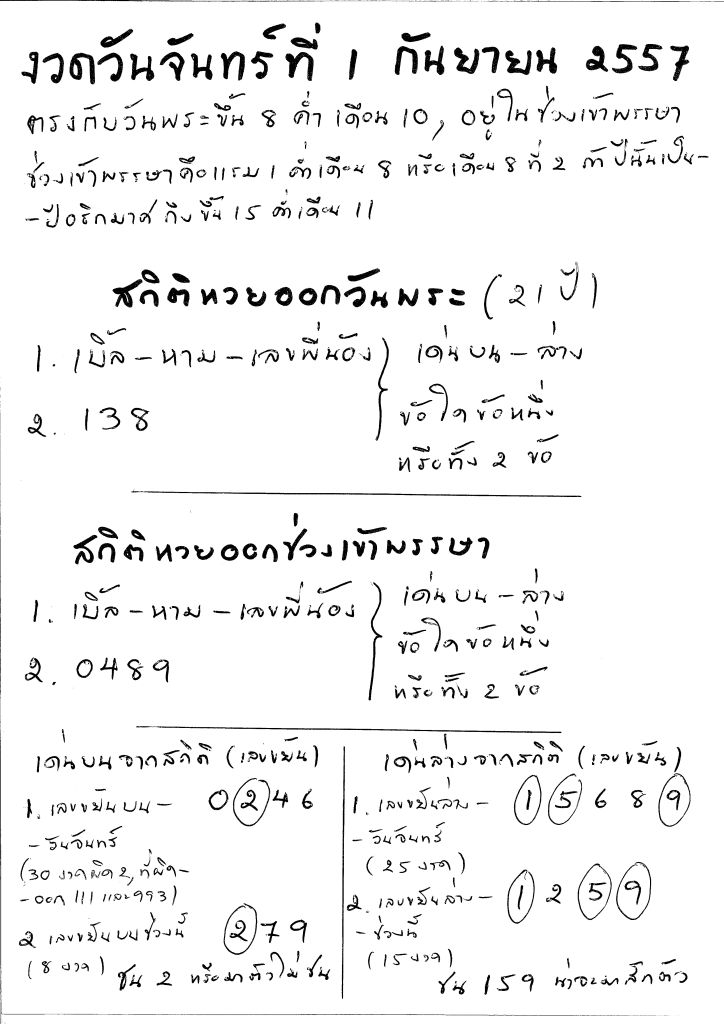 งวดวันจันทร์ที่ 1 กันยายน 2557
ตรงกับวันพระขึ้น 8 ค่ำ เดือน 10, อยู่ในช่วงเข้าพรรษา
ช่วงเข้าพรรษาคือแรม 1 ค่ำเดือน 8 หรือเดือน 8 ที่ 2 ถ้าปีนั้นเป็น-
-ปีอธิกมาศ ถึงขึ้น 15 ค่ำเดือน 11
สถิติหวยออกวันพระ (21 ปี)
1. เบิ้ล-หาม-เลขพี่น้อง
2. 138
เด่นบน-ล่าง
ข้อใดข้อหนึ่ง
หรือทั้ง 2 ข้อ
สถิติหวยออกช่วงเข้าพรรษา
1. เบิ้ล-หาม-เลขพี่น้อง
2. 0489
เด่นบน-ล่าง
ข้อใดข้อหนึ่ง
หรือทั้ง 2 ข้อ
เด่นบนจากสถิติ (เลขขยัน)
1. เลขขยันบน- 0246
-วันจันทร์
(30 งวดผิด 2, ที่ผิด-
-ออก 111 และ 993)
2 เลขขยันบนช่วงนี้ 279
(8 งวด) ชน 2 หรือมาตัวไม่ชน
เด่นล่างจากสถิติ (เลขขยัน)
1. เลขขยันล่าง- 15689
-วันจันทร์
(25 งวด)
2. เลขขยันล่าง- 1259
-ช่วงนี้
(15 งวด)
ชน 159 น่าจะมาสักตัว